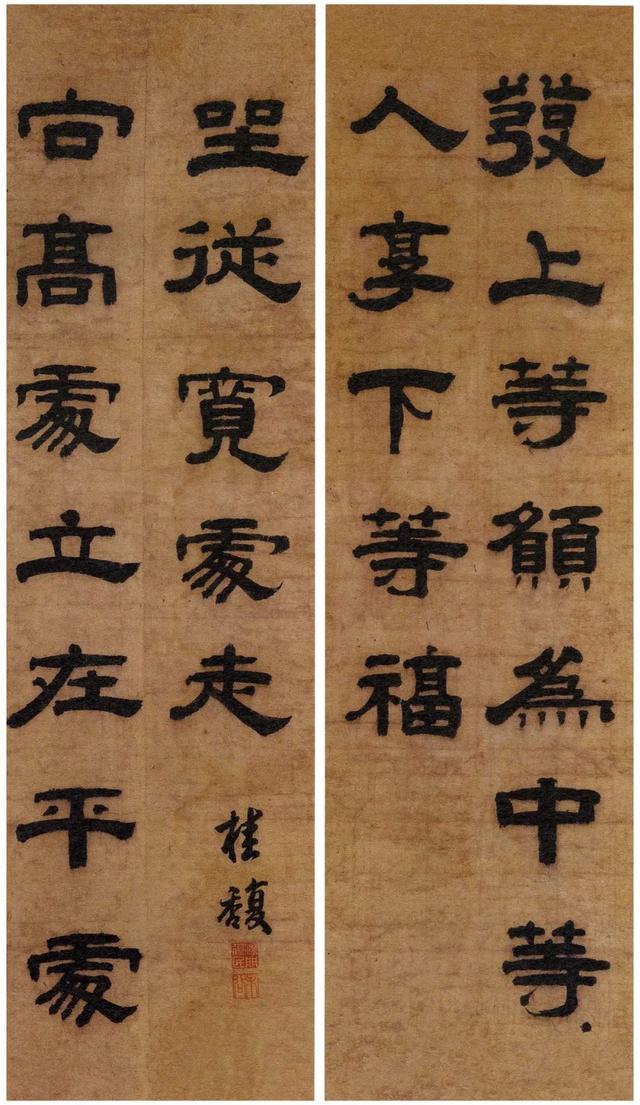 發上等願為中等
人享下等福
向髙處立在平處
坐從寬處走
桂馥